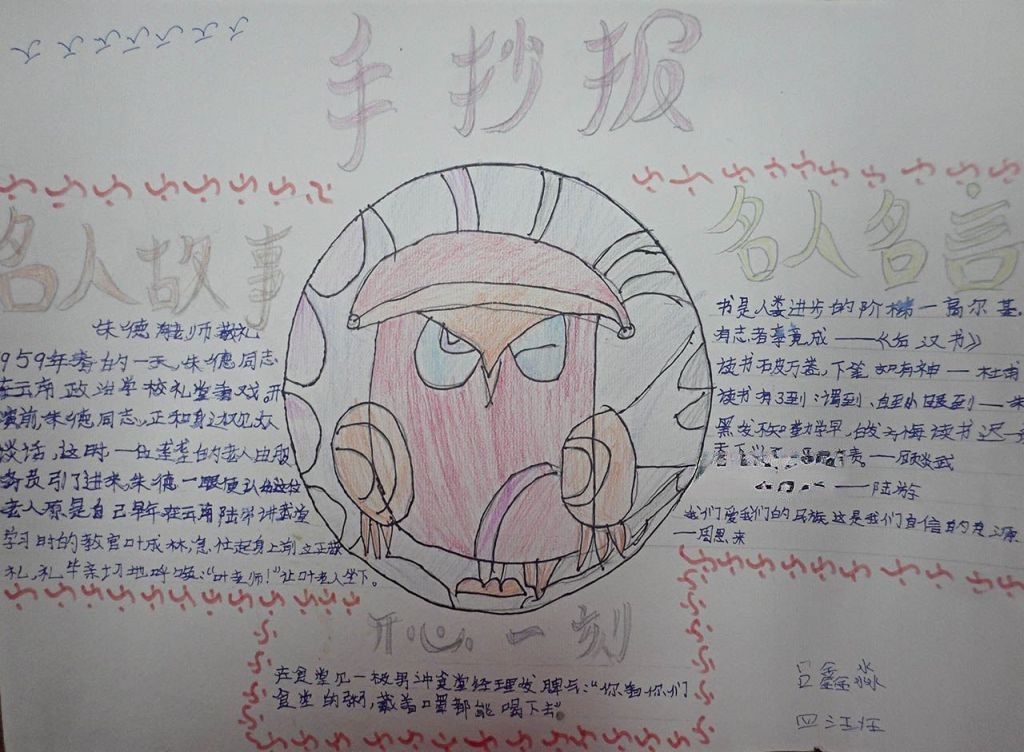 手抄报
名人故事
朱德 师敬礼
959年春的一天,朱德同志
在云南政法学校礼堂看戏,开
演前,朱德同志正和身边观众
谈话,这时,一位 的老人由服
务员引了进来,朱德一眼便认出这位
老人原是自己早年在云南陆军讲武堂
学习时的教官叶成林,急忙起身上前立正敬
礼,礼毕亲切地呼:“叶老师!”让叶老人坐下。
名人名言
书是人类进步的阶梯一高尔基
有志者事竟成——《后汉书》
读书破万卷,下笔如有神——杜甫
读书有3到:谓到、到——朱
黑发不知勤学早,白 读书迟——
责——顾炎武
——陆游
我们爱我们的民族,这是我们自信的 源
—周恩来
开心一刻
在食堂见一 男冲食堂经理发脾气:“你 你们
食堂的粥,戴着口罩都能喝下去”。
吕鑫淼
四